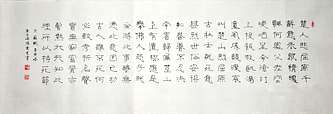 楚人悲屈原千
載意未歇精魂
飄何處父老空
哽咽至今滄江
上投飯救飢渴
遺風成競渡哀
叫楚山裂屈原
古壯士就死意
甚烈世俗安得
知眷眷不忍決
南賓舊屬楚山
上有遺塔應是
奉佛人恐子就
淪滅此事雖無
憑此意固已切
古人誰不死何
必較考折名聲
實無窮富貴亦
暫熱大夫知此
理所以持死節